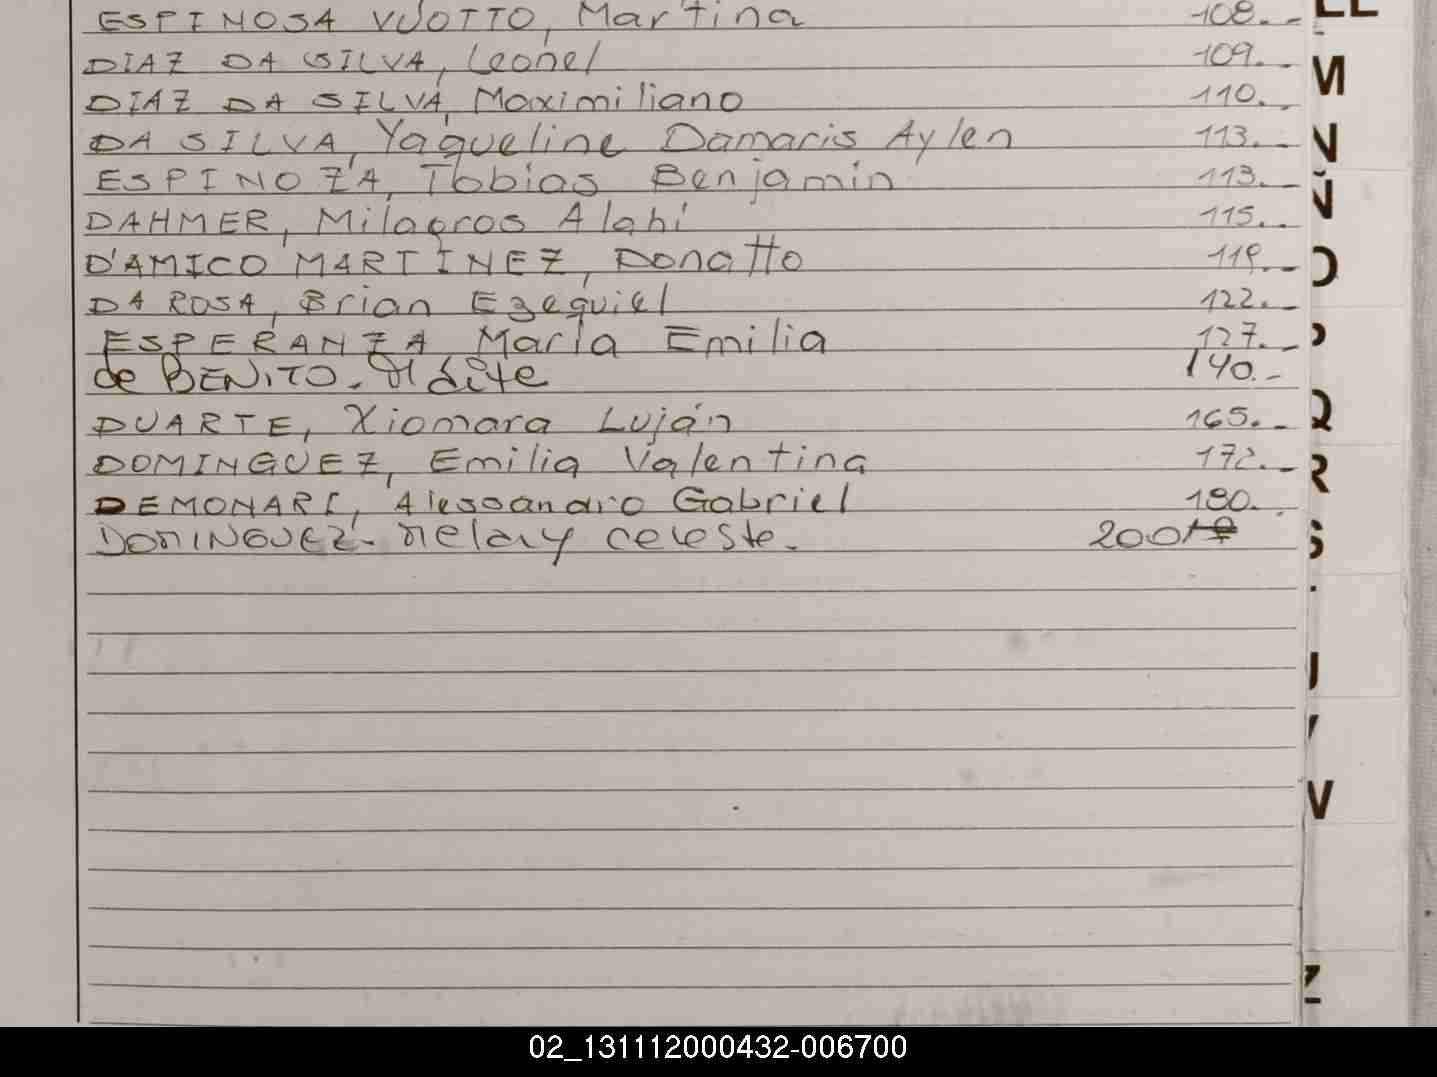 ESPINOSA VUOTTO, Martina 108.-
DIAZ DA SILVA, Leonel 109.-
DIAZ DA SILVA, Maximiliano 110.-
DA SILVA, Yaqueline Damaris Aylen 113.-
ESPINOZA, Tobias Benjamin 113.-
DAHMER, Milagros Alahi 115.-
D'AMICO MARTINEZ, Donatto 119.-
DA ROSA, Brian Ezequiel 122.-
ESPERANZA Maria Emilia 127.-
de BENITO. 140.-
DUARTE, Xiomara Luján 165.-
DOMINGUEZ, Emilia Valentina 172.-
DEMONARI, Alessandro Gabriel 180.
DOMINGUEZ- Melany celeste. 200
M
N
Ñ
O
P
Q
R
S
U
V
W
Z
02_131112000432-006700